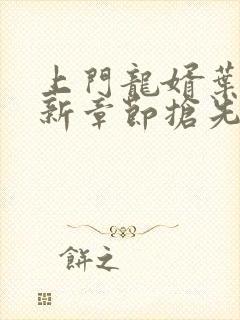 上門龍婿葉
新章節搶先
餅之